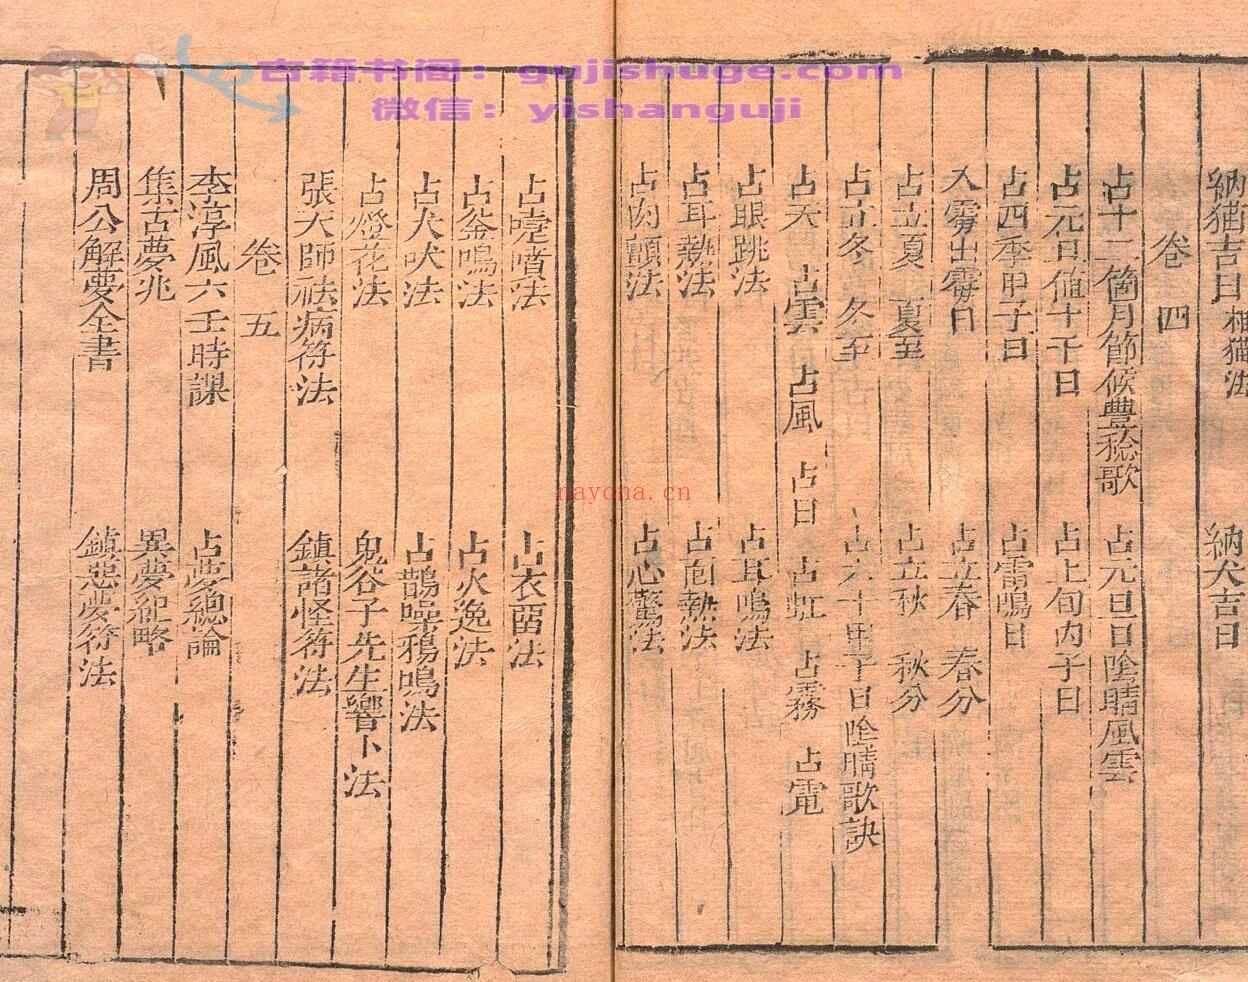 古籍书阁：gujishuge.com
微信：yishanguji
nayona.cn
納猫吉日 相猫法 納犬吉日
卷四
占十二箇月節候豊稔歌 占元旦日陰晴風雲
占元旦值十干日 占上旬内子日
占四季甲子日 占雷鳴日
入霉出霉日 占立春 春分
占立夏 夏至 占立秋 秋分
占立冬 冬至 占六十甲子日陰晴歌訣
占天 占雲 占風 占日 占虹 占霧 占電
占眼跳法 占耳鳴法
占耳熱法 占面熱法
占肉顫法 占心驚法
占嚏噴法 占衣留法
占釜鳴法 占火逸法
占犬吠法 占鵲噪鴉鳴法
占燈花法 鬼谷子先生響卜法
張天師祛病符法 鎮諸怪符法
卷五
李淳風六壬時課 占夢總論
集古夢兆 異夢紀略
周公解夢全書 鎮惡夢符法